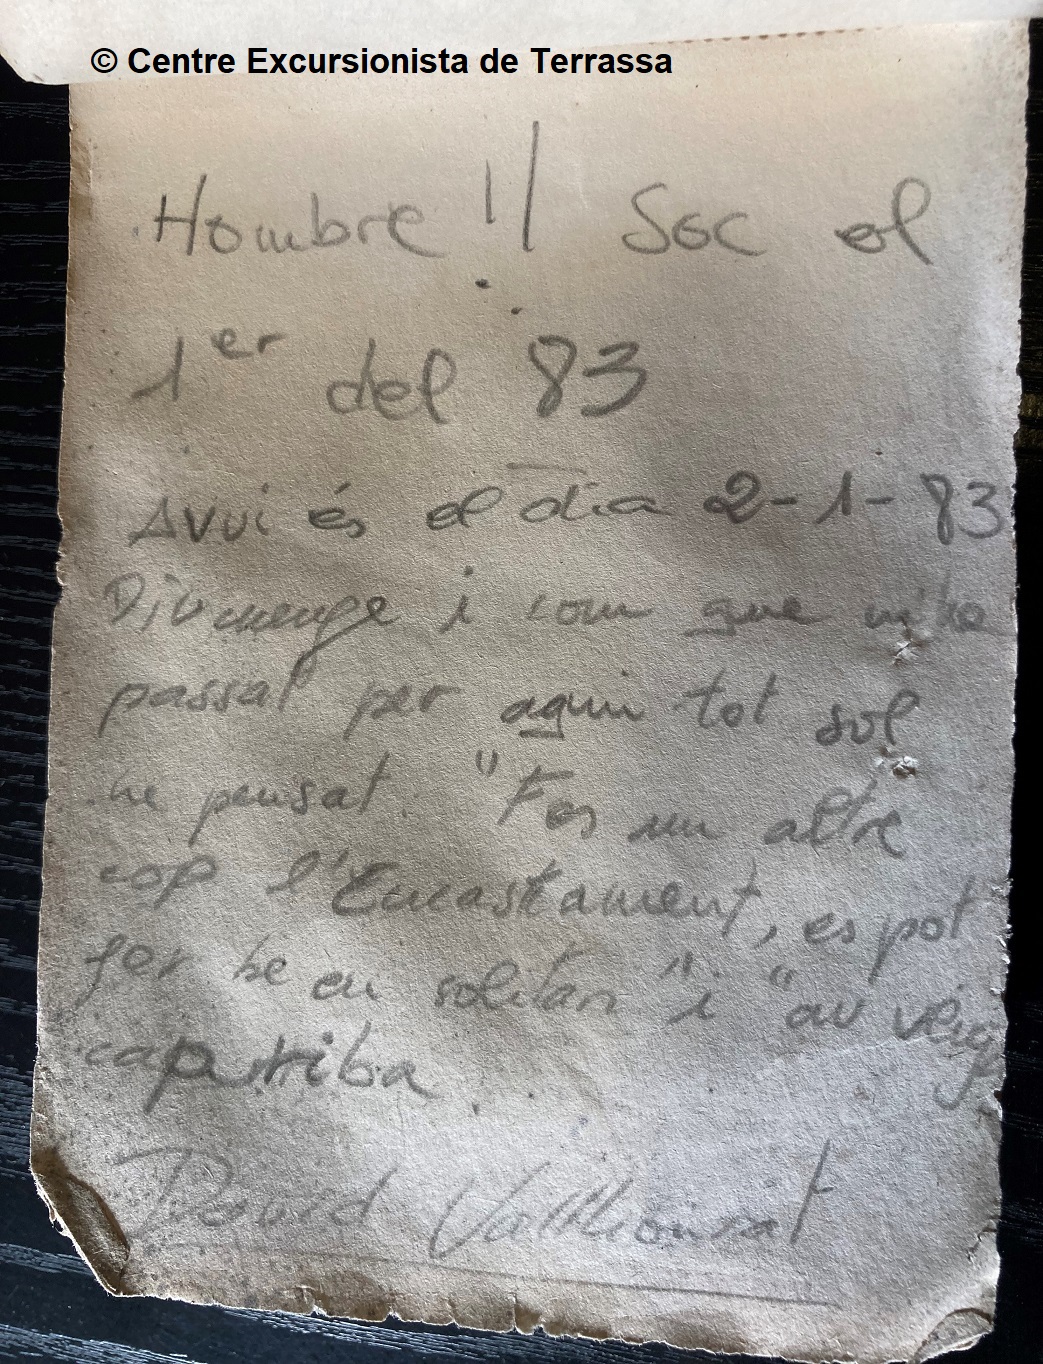 © Centre Excursionista de Terrassa
Hombre !! Soc el
1er del 83
Avui és el dia 2-1-83
Diumenge i com que m'he
passat per aquin tot sol
he pensat: "Fes un altre
cop l'Encastament, es pot
fer be en solitari" i "au vinga
cap arriba
David Vallhonrat